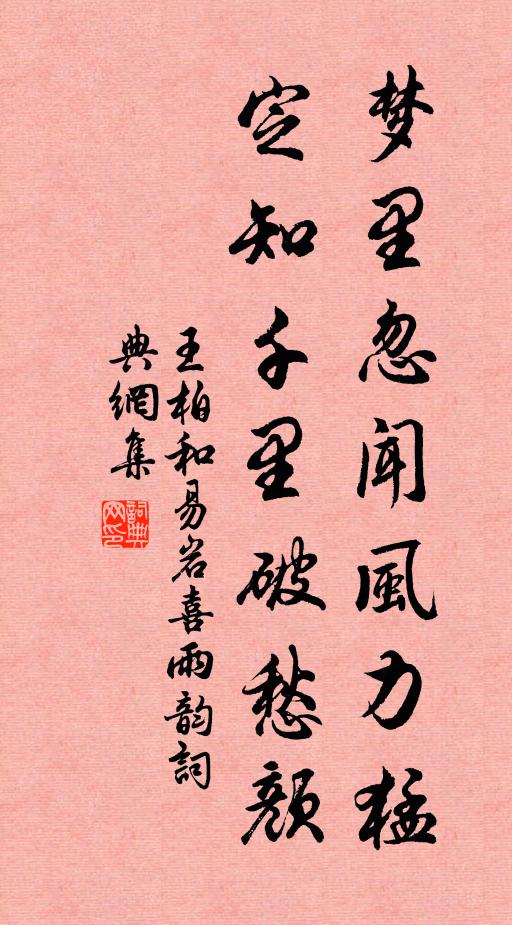 梦里忽闻風力猛
定知千里破愁颜
王柏和易岩喜雨韵詞
典網集
詞典网印